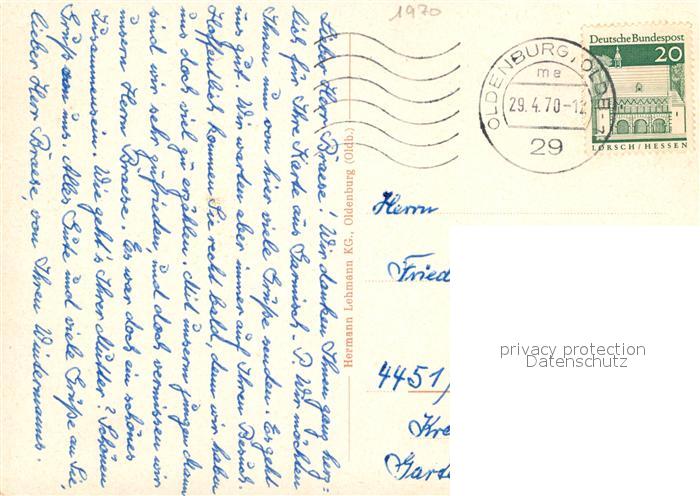 1970
Deutsche Bundespost
20
LORSCH/HESSEN
OLDENBURG (OLDB)
me
29.4.70-12
29
Lieber Herr Braese! Wir danken Ihnen ganz herz-
lich für Ihre Karte aus Garmisch-P. Wir möchten
Ihnen nun von hier viele Grüße senden. Es geht
uns gut. Wir warten aber immer auf Ihren Besuch.
Hoffentlich kommen Sie recht bald, denn wir haben
uns doch viel zu erzählen. Mit unserm jungen Mann
sind wir sehr zufrieden, und doch vermissen wir
unsern Herrn Braese. Es war doch ein schönes
Zusammensein. Wie geht's Ihrer Mutter? Schönen
Gruß von uns. Alles Gute und viele Grüße an Sie,
lieber Herr Braese, von Ihren Wintermanns.
Hermann Lehmann KG., Oldenburg (Oldb.)
Herrn
Fried
4451/
Kre
Garte
privacy protection
Datenschutz